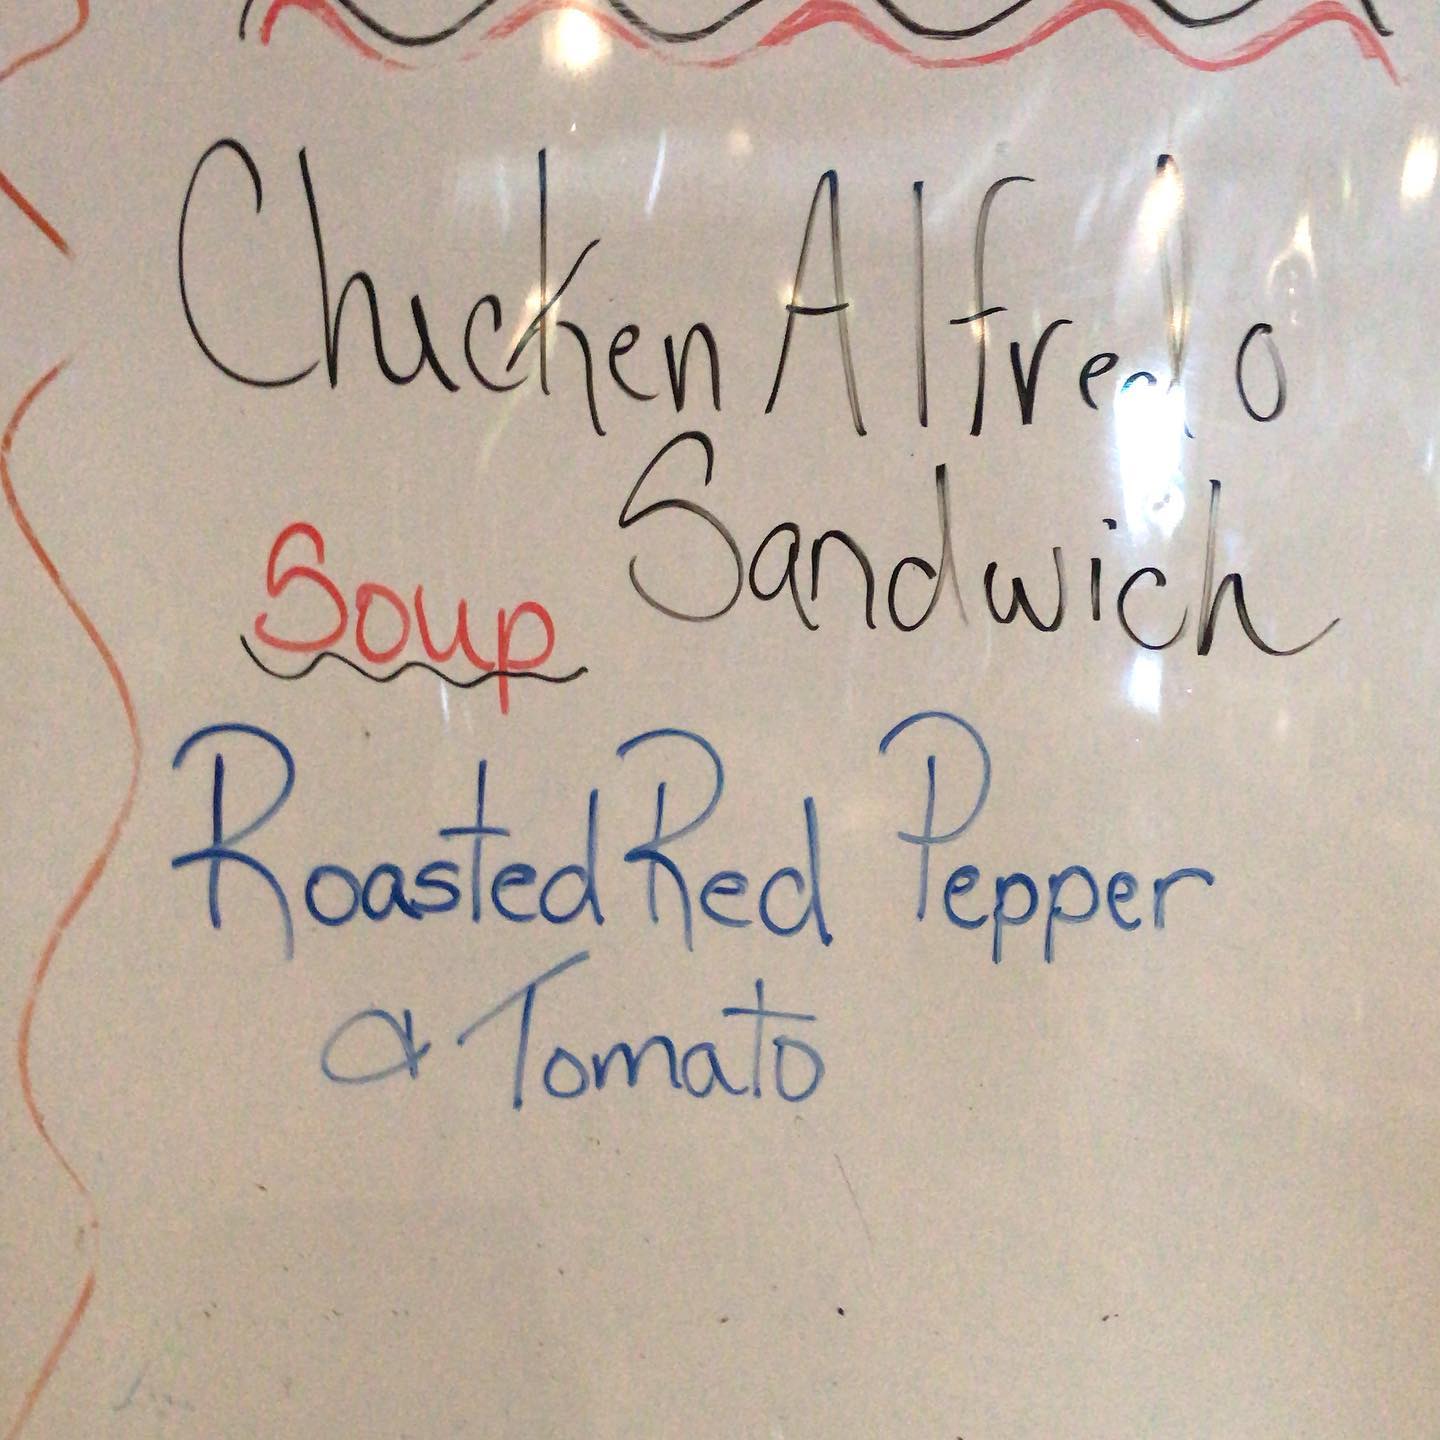 Chicken Alfredo
Sandwich
Soup
Roasted Red Pepper
& Tomato